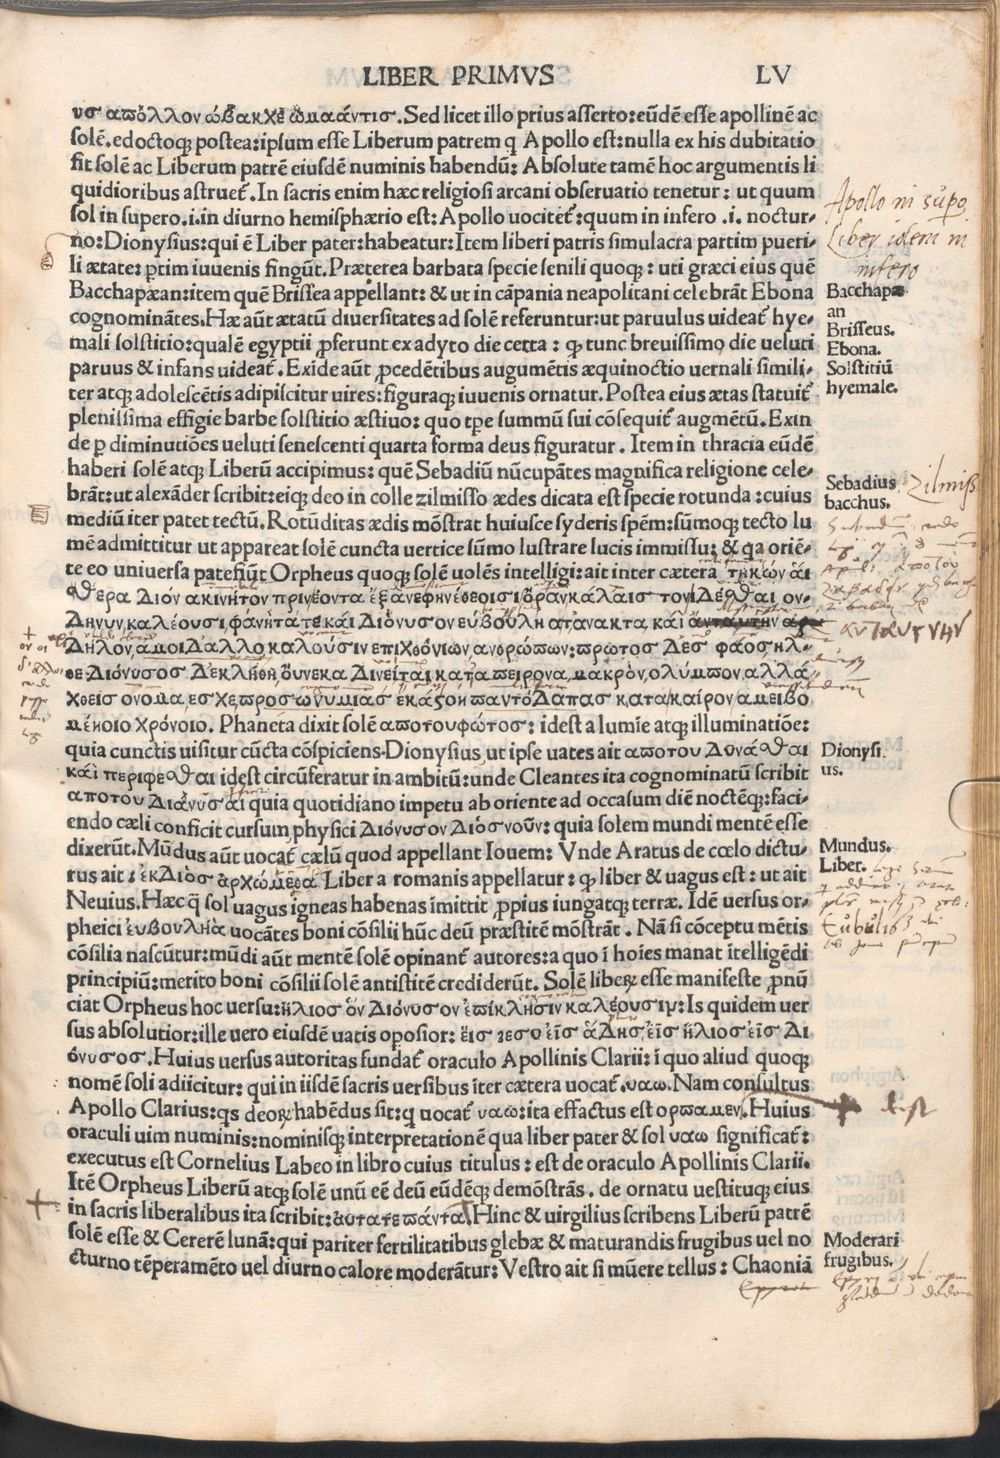 LIBER PRIMVS LV
υσ απόλλον ώβακχὲ ὢμαάντισ. Sed licet illo prius asserto: eūdē esse apollinē ac
solē. edoctoq̨ postea: ipsum esse Liberum patrem q Apollo est: nulla ex his dubitatio
fit solē ac Liberum patrē eiusdē numinis habendū: Absolute tamē hoc argumentis li
quidioribus astruet̃. In sacris enim hæc religiosi arcani obseruatio tenetur: ut quum
sol in supero .i. in diurno hemisphærio est: Apollo uocitet̃: quum in infero .i. noctur-
no: Dionysius: qui ē Liber pater: habeatur: Item liberi patris simulacra partim pueri-
li ætate: ꝑtim iuuenis fingūt. Præterea barbata specie senili quoq̨: uti græci eius quē
Bacchapæan: item quē Brissea appellant: & ut in cāpania neapolitani celebrāt Ebona
cognominātes. Hæ aūt ætatū diuersitates ad solē referuntur: ut paruulus uideat̃ hye-
mali solstitio: qualē egyptii ꝓferunt ex adyto die certa: ꝙ tunc breuissimo die ueluti
paruus & infans uideat̃. Exide aūt ꝓcedētibus augumētis æquinoctio uernali simili-
ter atq̨ adolescētis adipiscitur uires: figuraq̨ iuuenis ornatur. Postea eius ætas statuit̃
plenissima effigie barbe solstitio æstiuo: quo tꝑe summū sui cōsequit̃ augmētū. Exin
de ꝑ diminutiōes ueluti senescenti quarta forma deus figuratur. Item in thracia eūdē
haberi solē atq̨ Liberū accipimus: quē Sebadiū nūcupātes magnifica religione cele-
brāt: ut alexāder scribit: eiq̨ deo in colle zilmisso ædes dicata est specie rotunda: cuius
mediū iter patet tectū. Rotūditas ædis mōstrat huiusce syderis spēm: sūmoq̨ tecto lu
mē admittitur ut appareat solē cuncta uertice sūmo lustrare lucis immissu: & qa oriē-
te eo uniuersa patefiūt Orpheus quoq̨ solē uolēs intelligi: ait inter cætera τηκών ἅι
θερα Διόν ακινήτον πρινέοντα ἐξ ανεφηνέθεοισι ὁρανκάλαισ τονἰΔέσθαι ον-
Δηνυν, καλέουσι φάνητα τε κάι Διόνυσον ευβουλη ατ'ανακτα, κάι ἀνταυτην αρι
Δηλον, αμοιΔαλλο καλούσιν επιχθόνιων ανθρώπων: πρώτοσ Δεσ φάοσ ηλ-
θε Διόνυσοσ Δεκλήθη, ὅυνεκα Δινεῖται κατα πειρονα, μακρόν, ολύμπον, αλλά
χθεὶσ ονομα, εσχε προσωνυμιασ ἑκάσοιϊ παντόΔαπασ κατα καίρον αμειβο
μένοιο χρόνοιο. Phaneta dixit solē αποτουφώτοσ: idest a lumīe atq̨ illuminatiōe:
quia cunctis uisitur cūcta cōspiciens. Dionysius, ut ipse uates ait αποτου Δυνάσθαι
κάι περιφεσθαι idest circūferatur in ambitū: unde Cleantes ita cognominatū scribit
αποτου Διανύσαι quia quotidiano impetu ab oriente ad occasum diē noctēq̨: faci-
endo cæli conficit cursum, physici Διόνυσον Διόσ νοῦν: quia solem mundi mentē esse
dixerūt. Mūdus aūt uocat̃ cælū quod appellant Iouem: Vnde Aratus de cœlo dictu-
rus ait: ἐκΔιὸσ ἀρχώμεθα Liber a romanis appellatur: ꝙ liber & uagus est: ut ait
Neuius. Hæc q̄ sol uagus igneas habenas imittit ꝓpius iungatq̨ terræ. Idē uersus or-
pheici ἐυβουλῆα uocātes boni cōsilii hūc deū præstitē mōstrāt. Nā si cōceptu mētis
cōsilia nascūtur: mūdi aūt mentē solē opinant̃ autores: a quo ī hoīes manat ītelligēdi
principiū: merito boni cōsilii solē antistitē crediderūt. Solē liberꝝ esse manifeste ꝓnū
ciat Orpheus hoc uersu: ἥλιοσ ὃν Διόνυσον ἐπίκλησιν καλέουσιν: Is quidem uer
sus absolutior: ille uero eiusdē uatis oposior: ἕισ ζεσ ὑεῖσ ἅΔησ, εἷσ ἥλιοσ εἷσ Δι
όνυσοσ. Huius uersus autoritas fundat̃ oraculo Apollinis Clarii: ī quo aliud quoq̨
nomē soli adiicitur: qui in iisdē sacris uersibus īter cætera uocat̃ .υαω. Nam consultus
Apollo Clarius: qs deoꝝ habēdus sit: q uocat̃ υαω: ita effactus est ορπαμεν. Huius
oraculi uim numinis: nominisq̨ interpretationē qua liber pater & sol υαω significat̃:
executus est Cornelius Labeo in libro cuius titulus: est de oraculo Apollinis Clarii.
Itē Orpheus Liberū atq̨ solē unū eē deū eūdēq̨ demōstrās. de ornatu uestituq̨ eius
in sacris liberalibus ita scribit: ἀυτατεπάντα. Hinc & uirgilius scribens Liberū patrē
solē esse & Cererē lunā: qui pariter fertilitatibus glebæ & maturandis frugibus uel no
cturno tēperamēto uel diurno calore moderātur: Vestro ait si mūere tellus: Chaoniā
Apollo in supo
Liber idem in
infero
Bacchapæ
an
Brisseus.
Ebona.
Solstitiū
hyemale.
Sebadius
bacchus.
Zilmiss
Dionysi
us.
Mundus.
Liber.
Moderari
frugibus.